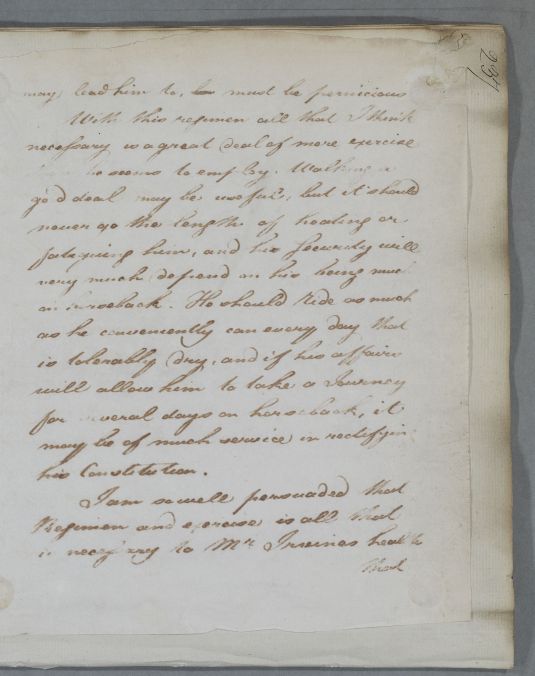 237
may lead him to, must be pernicious
With this regimen all that I think
necessary is a great deal of more exercise
he seems to employ. Walking a
good deal may be useful, but it should
never go the length of heating or
fatiguing him, and his Security will
very much depend on his being much
on horseback. He should Ride as much
as he conveniently can every day that
is tolerably dry, and if his affairs
will allow him to take a Journey
for several days on horseback, it
may be of much service in rectifying
his Constitution.
I am so well persuaded that
Regimen and exercise is all that
is necessary to Mr. Irvines health
that